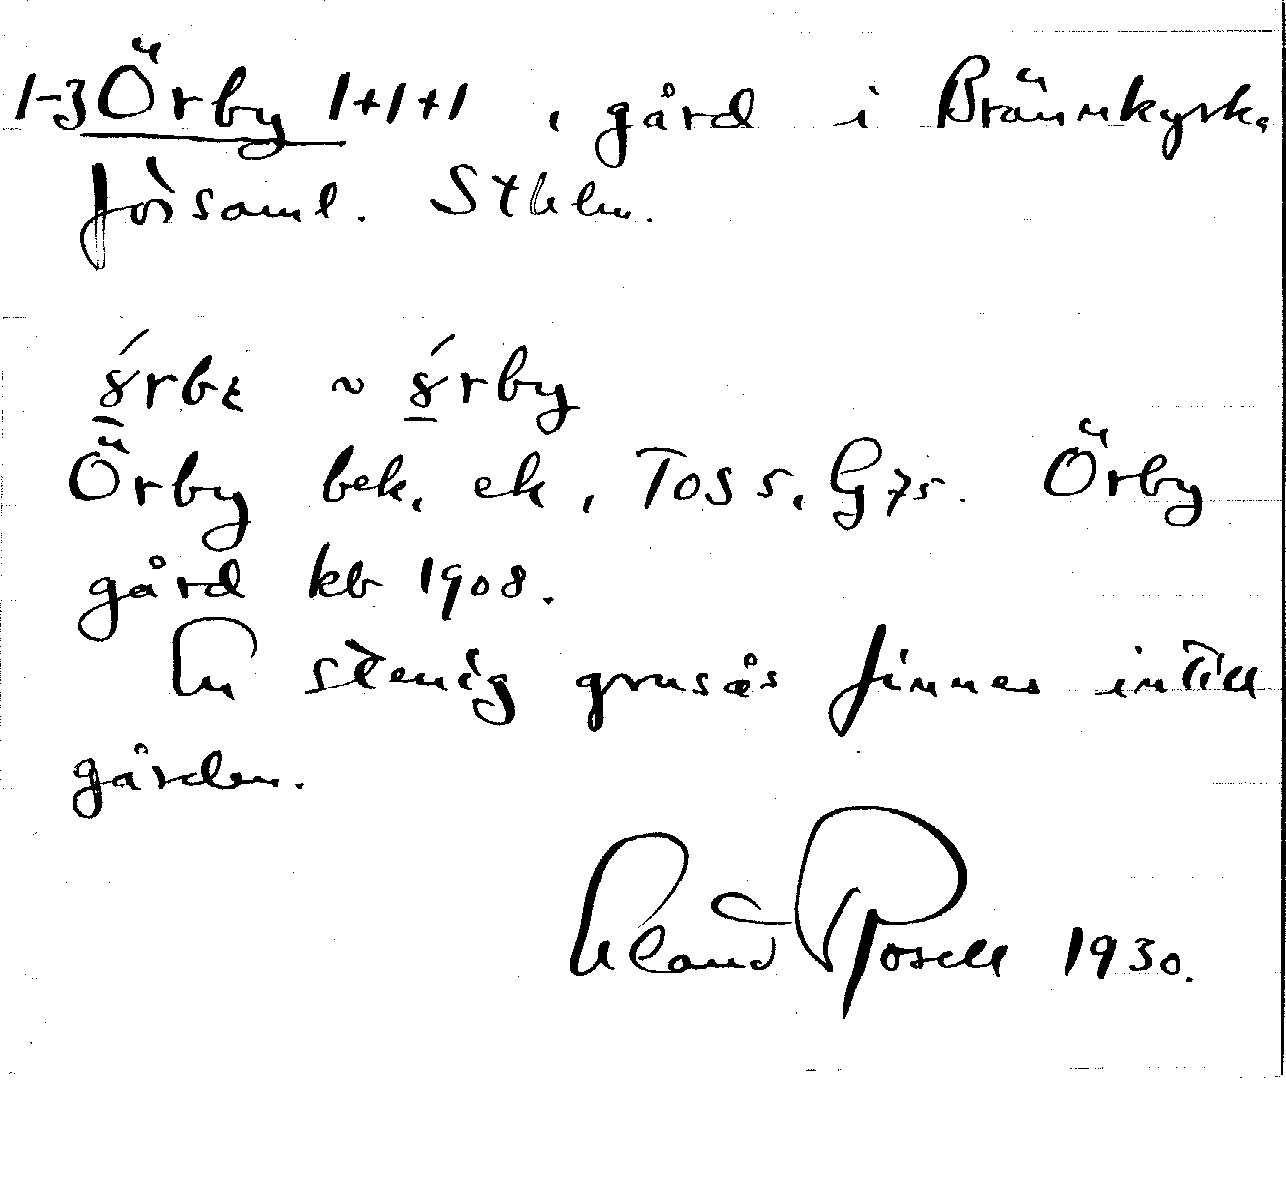 1-3 Örby 1+1+1, gård i Brännkyrk.
församl. Sthlm.
Örby bek. ek, Tos 5, G75. Örby
gård kb 1908.
En stenig grusås finnes intill
gården.
Rosell 1930.